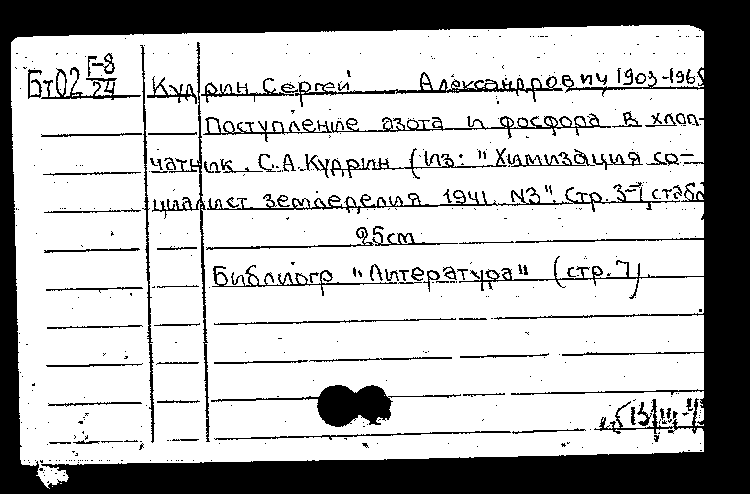 Бт02 Г-8/24
Кудрин, Сергей Александрович 1903-1965
Поступление азота и фосфора в хлоп-
чатник. С.А.Кудрин (Из: "Химизация со-
циалист. земледелия 1941. N3". Стр. 3-7, с табл
25cm.
Библиогр. "Литература" (стр. 7)